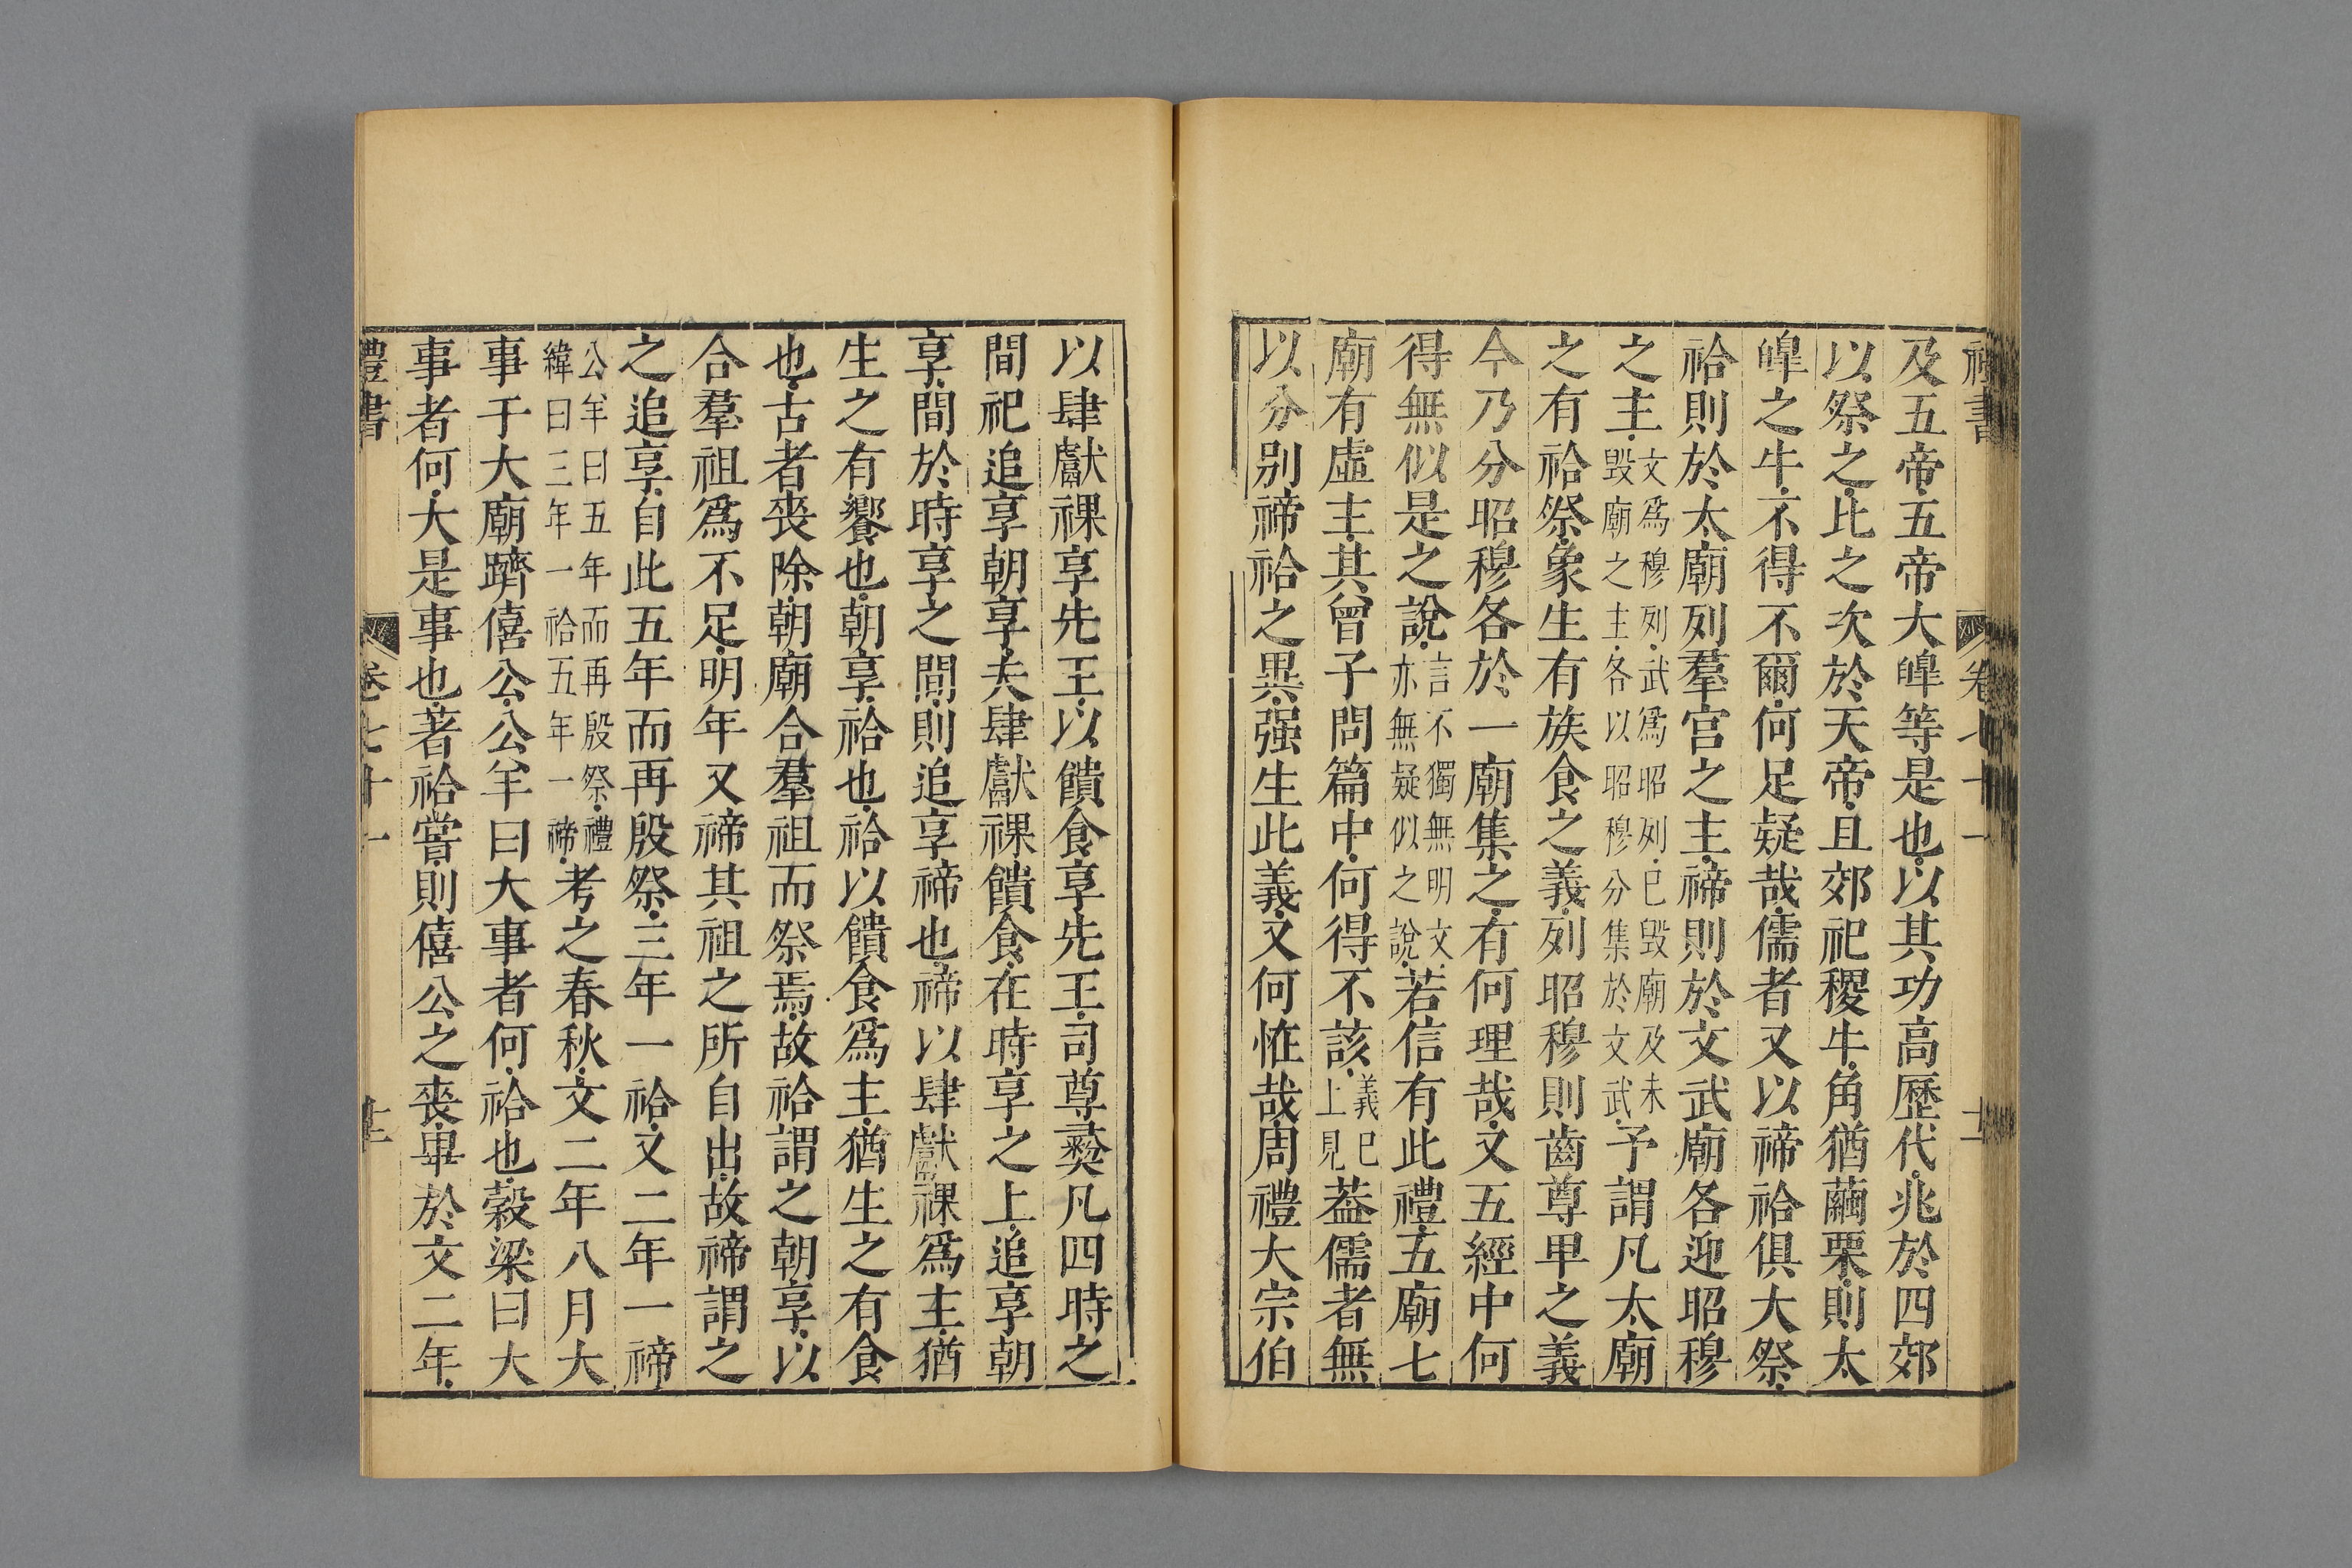 禮書 卷七十一
及五帝五帝大皥等是也以其功高歷代兆於四郊
以祭之此之次於天帝且郊祀稷牛角猶繭栗則太
皥之牛不得不爾何足疑哉儒者又以禘祫俱大祭
祫則於太廟列羣宫之主禘則於文武廟各迎昭穆
之主文爲穆列武爲昭列已毀廟及未毀廟之主各以昭穆分集於文武予謂凡太廟
之有祫祭象生有族食之義列昭穆則齒尊卑之義
今乃分昭穆各於一廟集之有何理哉又五經中何
得無似是之說言不獨無明文亦無疑似之說若信有此禮五廟七
廟有虛主其曾子問篇中何得不該義已上見葢儒者無
以分别禘祫之異强生此義又何怪哉周禮大宗伯
以肆獻祼享先王以饋食享先王司尊彝凡四時之
間祀追享朝享夫肆獻祼饋食在時享之上追享朝
享間於時享之間則追享禘也禘以肆獻祼爲主猶
生之有饗也朝享祫也祫以饋食爲主猶生之有食
也古者喪除朝廟合羣祖而祭焉故祫謂之朝享以
合羣祖爲不足明年又禘其祖之所自出故禘謂之
之追享自此五年而再殷祭三年一祫又二年一禘
公羊曰五年而再殷祭禮緯曰三年一祫五年一禘考之春秋文二年八月大
事于大廟躋僖公公羊曰大事者何祫也穀梁曰大
事者何大是事也著祫嘗則僖公之喪畢於文二年
禮書 卷七十一